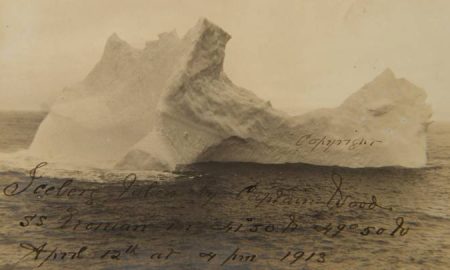 Copyright
Iceberg Taken by Captain Wood
SS Etonian in 41°50 N 49°50 W
April 12th at 4 pm 1913